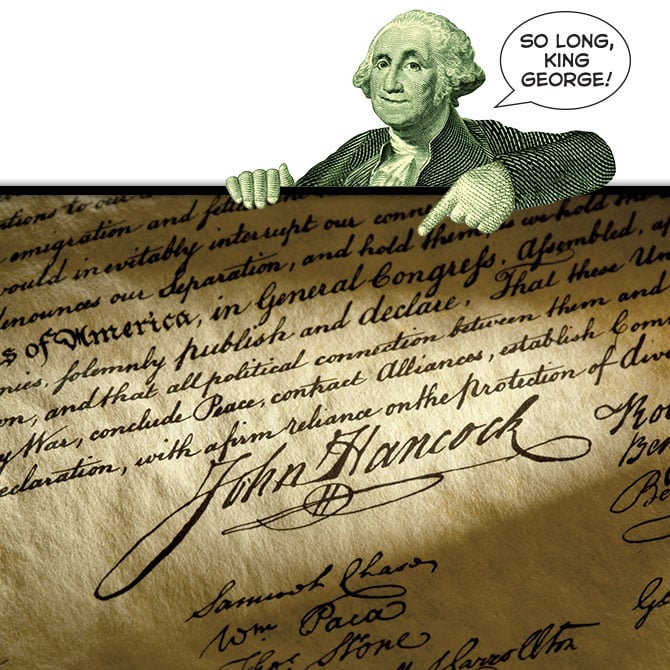 SO LONG,
KING
GEORGE!
emigration and
would inevitably interrupt our
denounces our Separation, and hold them as we hold
of America, in General Congress, Assembled,
solemnly publish and declare, That these
and that all political connection between them and
War, conclude Peace, contract Alliances, establish
with a firm reliance on the protection of
John Hancock
Samuel Chase
Wm Paca
Thos Stone